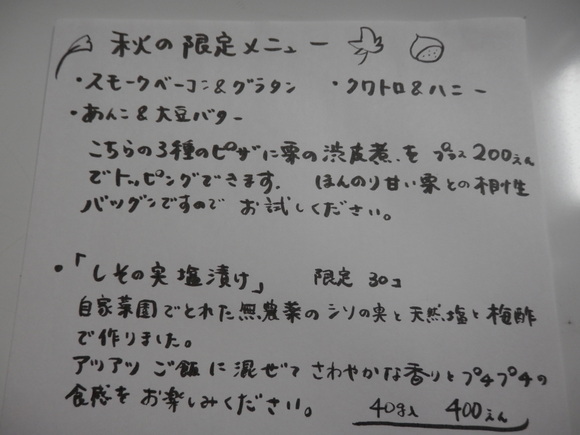 秋の限定メニュー
・スモークベーコン&グラタン ・クワトロ&ハニー
・あんこ&大豆バター
こちらの3種のピザに栗の渋皮煮を プラス200えん
でトッピングできます. ほんのり甘い栗との相性
バツグンですので お試しください。
・「しその実塩漬け」 限定 30コ
自家菜園でとれた無農薬のシソの実と天然塩と梅酢
で作りました。
アツアツ ご飯に混ぜて さわやかな香りとプチプチの
食感を お楽しみください。 40g入 400えん